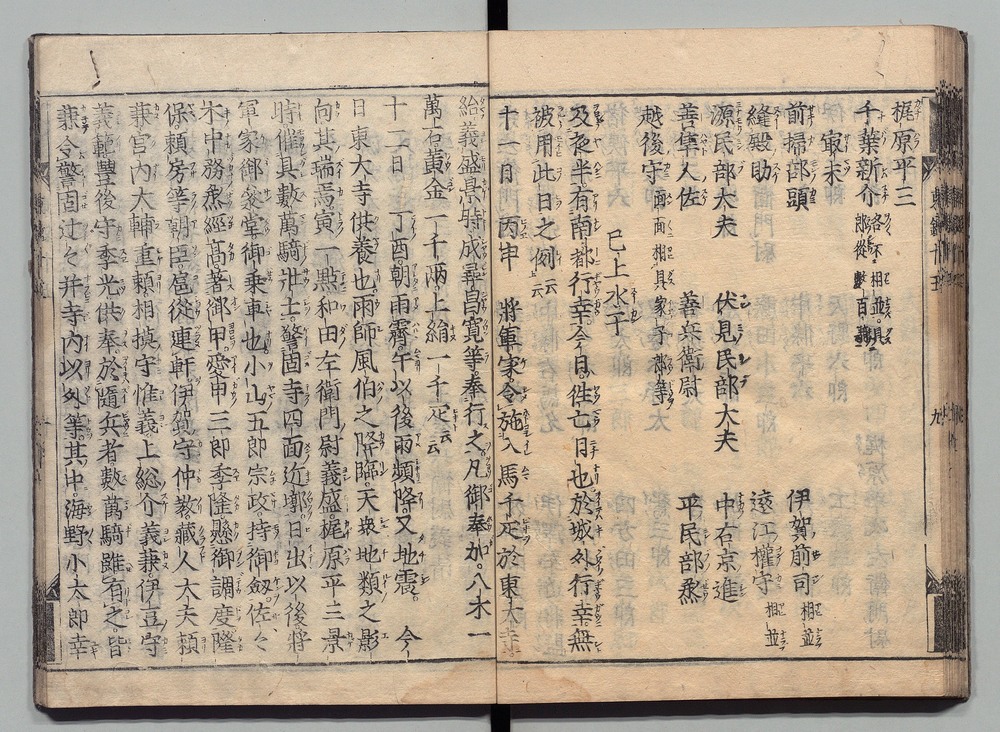 梶原平三
千葉新介 各不相並具郎從數百騎
最末
前掃部頭 伊賀前司 相並
縫殿助 遠江權守 相並
源民部大夫 伏見民部大夫 中右京進
善隼人佐 善兵衛尉 平民部烝
越後守 面面相具家子郎等
已上水干
及夜半有南都行幸今日徃亡日也於城外行幸無
被用此日之例云云
十一日丙申 將軍家令施入馬千疋於東大寺
給義盛景時成尋昌寛等奉行之凡御奉加八木一
萬石黄金一千兩上絹一千疋云云
十二日丁酉朝雨霽午以後雨頻降又地震 今
日東大寺供養也雨師風伯之降臨天衆地類之影
向其瑞焉寅一點和田左衛門尉義盛梶原平三景
時催具數萬騎壯士警固寺四面近墎日出以後將
軍家御參堂御乗車也小山五郎宗政持御劔佐々
木中務烝經高著御甲愛甲三郎季隆懸御調度隆
保頼房等朝臣扈從連軒伊賀守仲教藏人大夫頼
兼宮内大輔重頼相摸守惟義上総介義兼伊豆守
義範豐後守季光供奉於隨兵者數萬騎雖有之皆
兼令警固辻々并寺内以外等其中海野小太郎幸